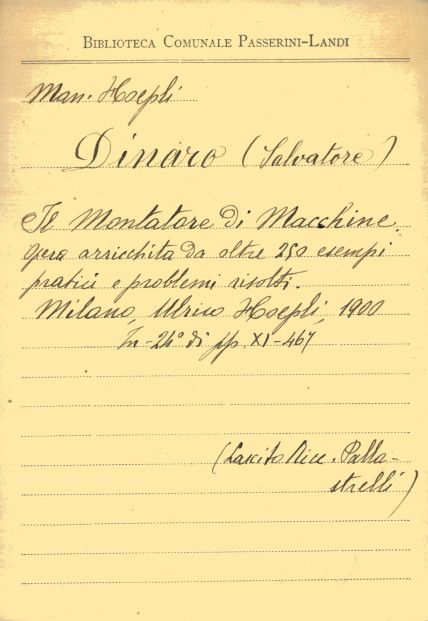 BIBLIOTECA COMUNALE PASSERINI-LANDI
Man. Hoepli
Dinaro (Salvatore)
Il Montatore di Macchine.
Opera arricchita da oltre 250 esempi
pratici e problemi risolti.
Milano, Ulrico Hoepli, 1900
In-24° di pp. XI-467
(Lascito Nice. Palla-
strelli)